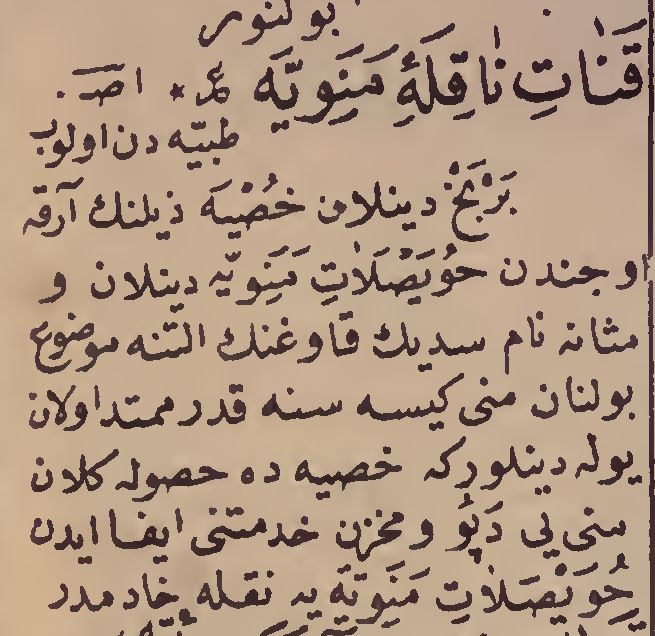 بولنور
قَنَاتِ نَاقِلَهٔ مَنَوِيَّه ع * اصـ .
طبيّه دن اولوب
بَرْبَخْ دينلان خُصْيَه ذيلنك آرقه
اوجندن حُوَيْصَلَاتِ مَنَوِيَّه دينلان و
مثانه نام سديك قاوغنك التنه موضوع
بولنان منى كيسه سنه قدر ممتد اولان
يوله دينلوركه خصيه ده حصوله كلان
منى يى دَپُو و مخزن خدمتنى ايفا ايدن
حُوَيْصَلَاتِ مَنَوِيَّه يه نقله خادمدر